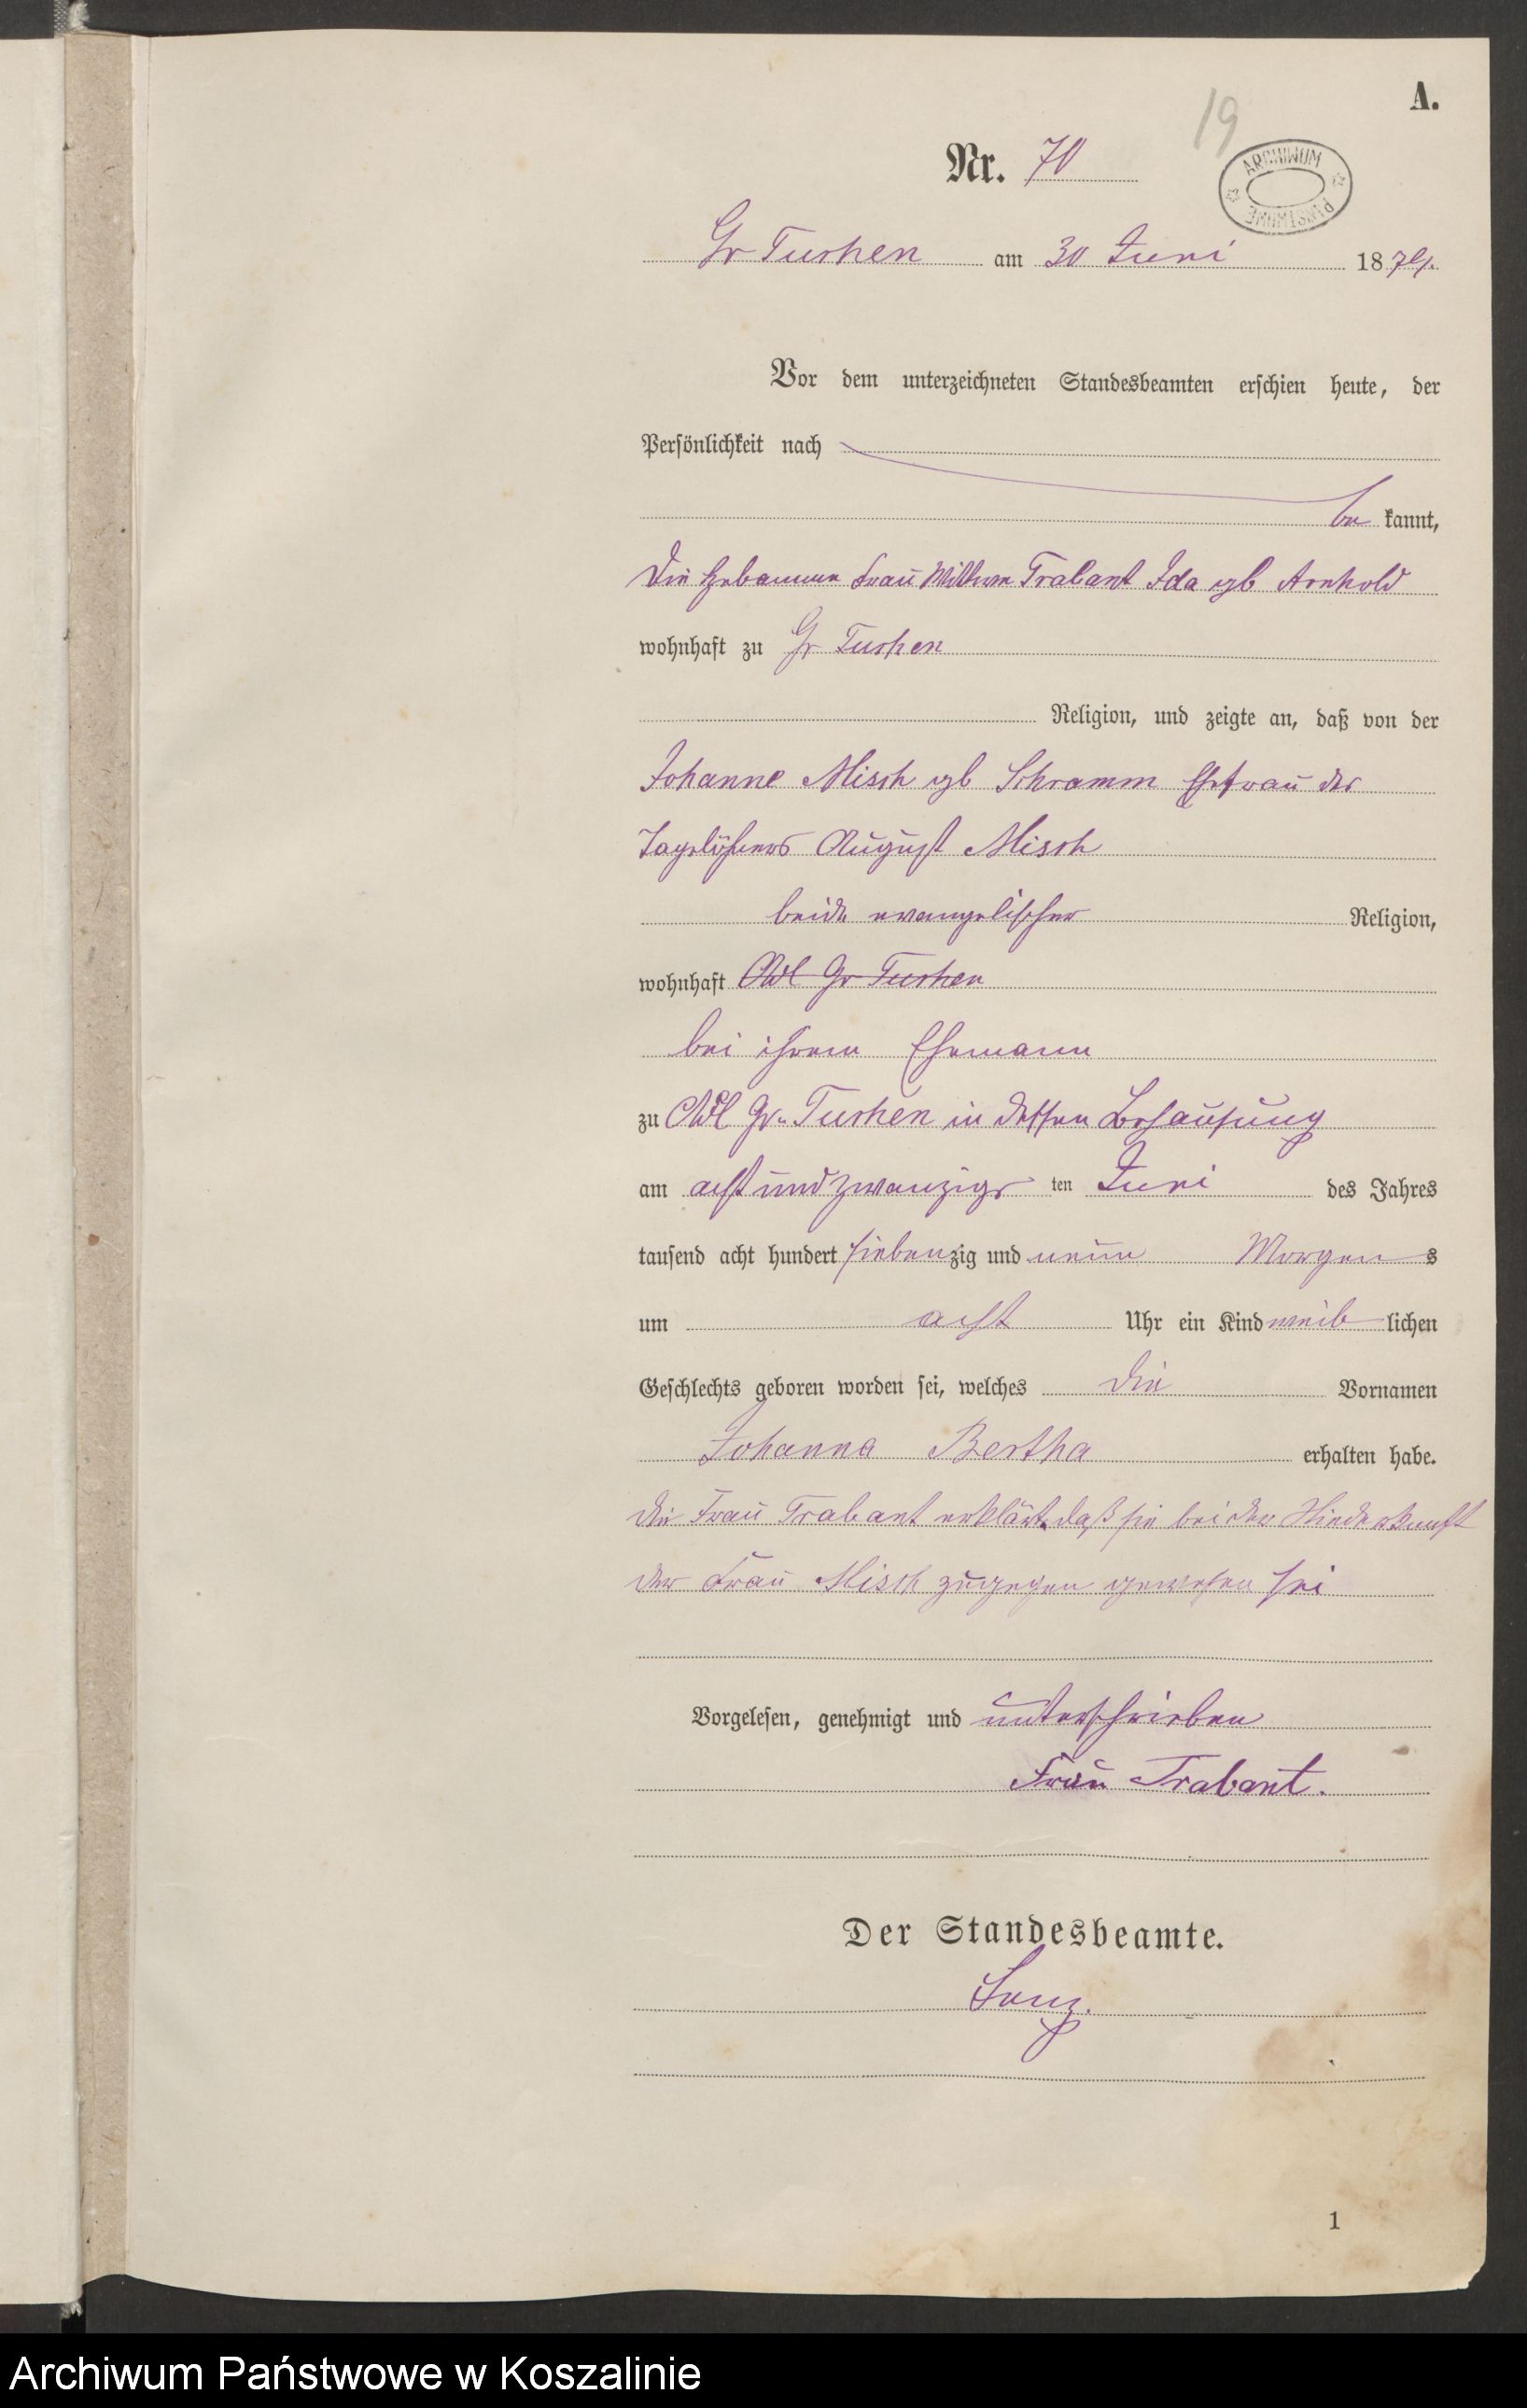 A.
19
Nr. 70
ARCHIWUM PAŃSTWOWE
Gr Tuchen am 30 Juni 1879.
Vor dem unterzeichneten Standesbeamten erschien heute, der
Persönlichkeit nach
be kannt,
die Hebamme Frau Wittwe Trabant Ida gb Arnhold
wohnhaft zu Gr Tuchen
Religion, und zeigte an, daß von der
Johanne Misch gb Schramm Ehefrau des
Tagelöhners August Misch
beide evangelischer Religion,
wohnhaft Adl Gr Tuchen
bei ihrem Ehemann
zu Adl Gr. Tuchen in dessen Behausung
am acht und zwanzigs ten Juni des Jahres
tausend acht hundert siebenzig und neun Morgens
um acht Uhr ein Kind weib lichen
Geschlechts geboren worden sei, welches die Vornamen
Johanna Bertha erhalten habe.
die Frau Trabant erklärt daß sie bei der Niederkunft
der Frau Misch zugegen gewesen sei
Vorgelesen, genehmigt und unterschrieben
Frau Trabant.
Der Standesbeamte.
1
Archiwum Państwowe w Koszalinie